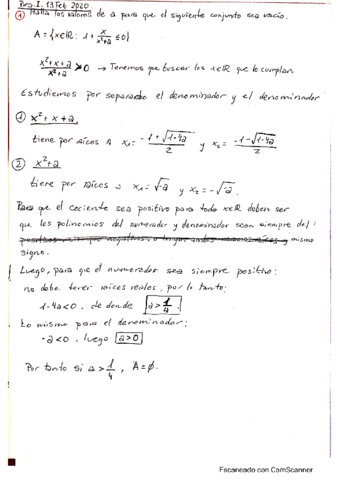 Pro. I. 13 Feb 2020.
① Halla los valores de a para que el siguiente conjunto sea vacío.
A = {x∈ℝ: 1 + x/(x²+a) ≤ 0}
(x²+x+a)/(x²+a) > 0 → Tenemos que buscar los x∈ℝ que lo cumplan
Estudiemos por separado el denominador y el denominador
① x²+x+a,
tiene por raíces a x₁ = (-1+√(1-4a))/2 y x₂ = (-1-√(1-4a))/2
② x²+a
tiene por raíces a x₁ = √-a y x₂ = -√-a.
Para que el cociente sea positivo para todo x∈ℝ deben ser
que los polinomios del numerador y denominador sean siempre del
mismo
signo.
Luego, para que el numerador sea siempre positivo:
no debe tener raíces reales, por lo tanto:
1-4a<0, de donde a > 1/4.
Lo mismo para el denominador:
-a<0, luego a>0
Por tanto si a > 1/4, A=∅.
Escaneado con CamScanner